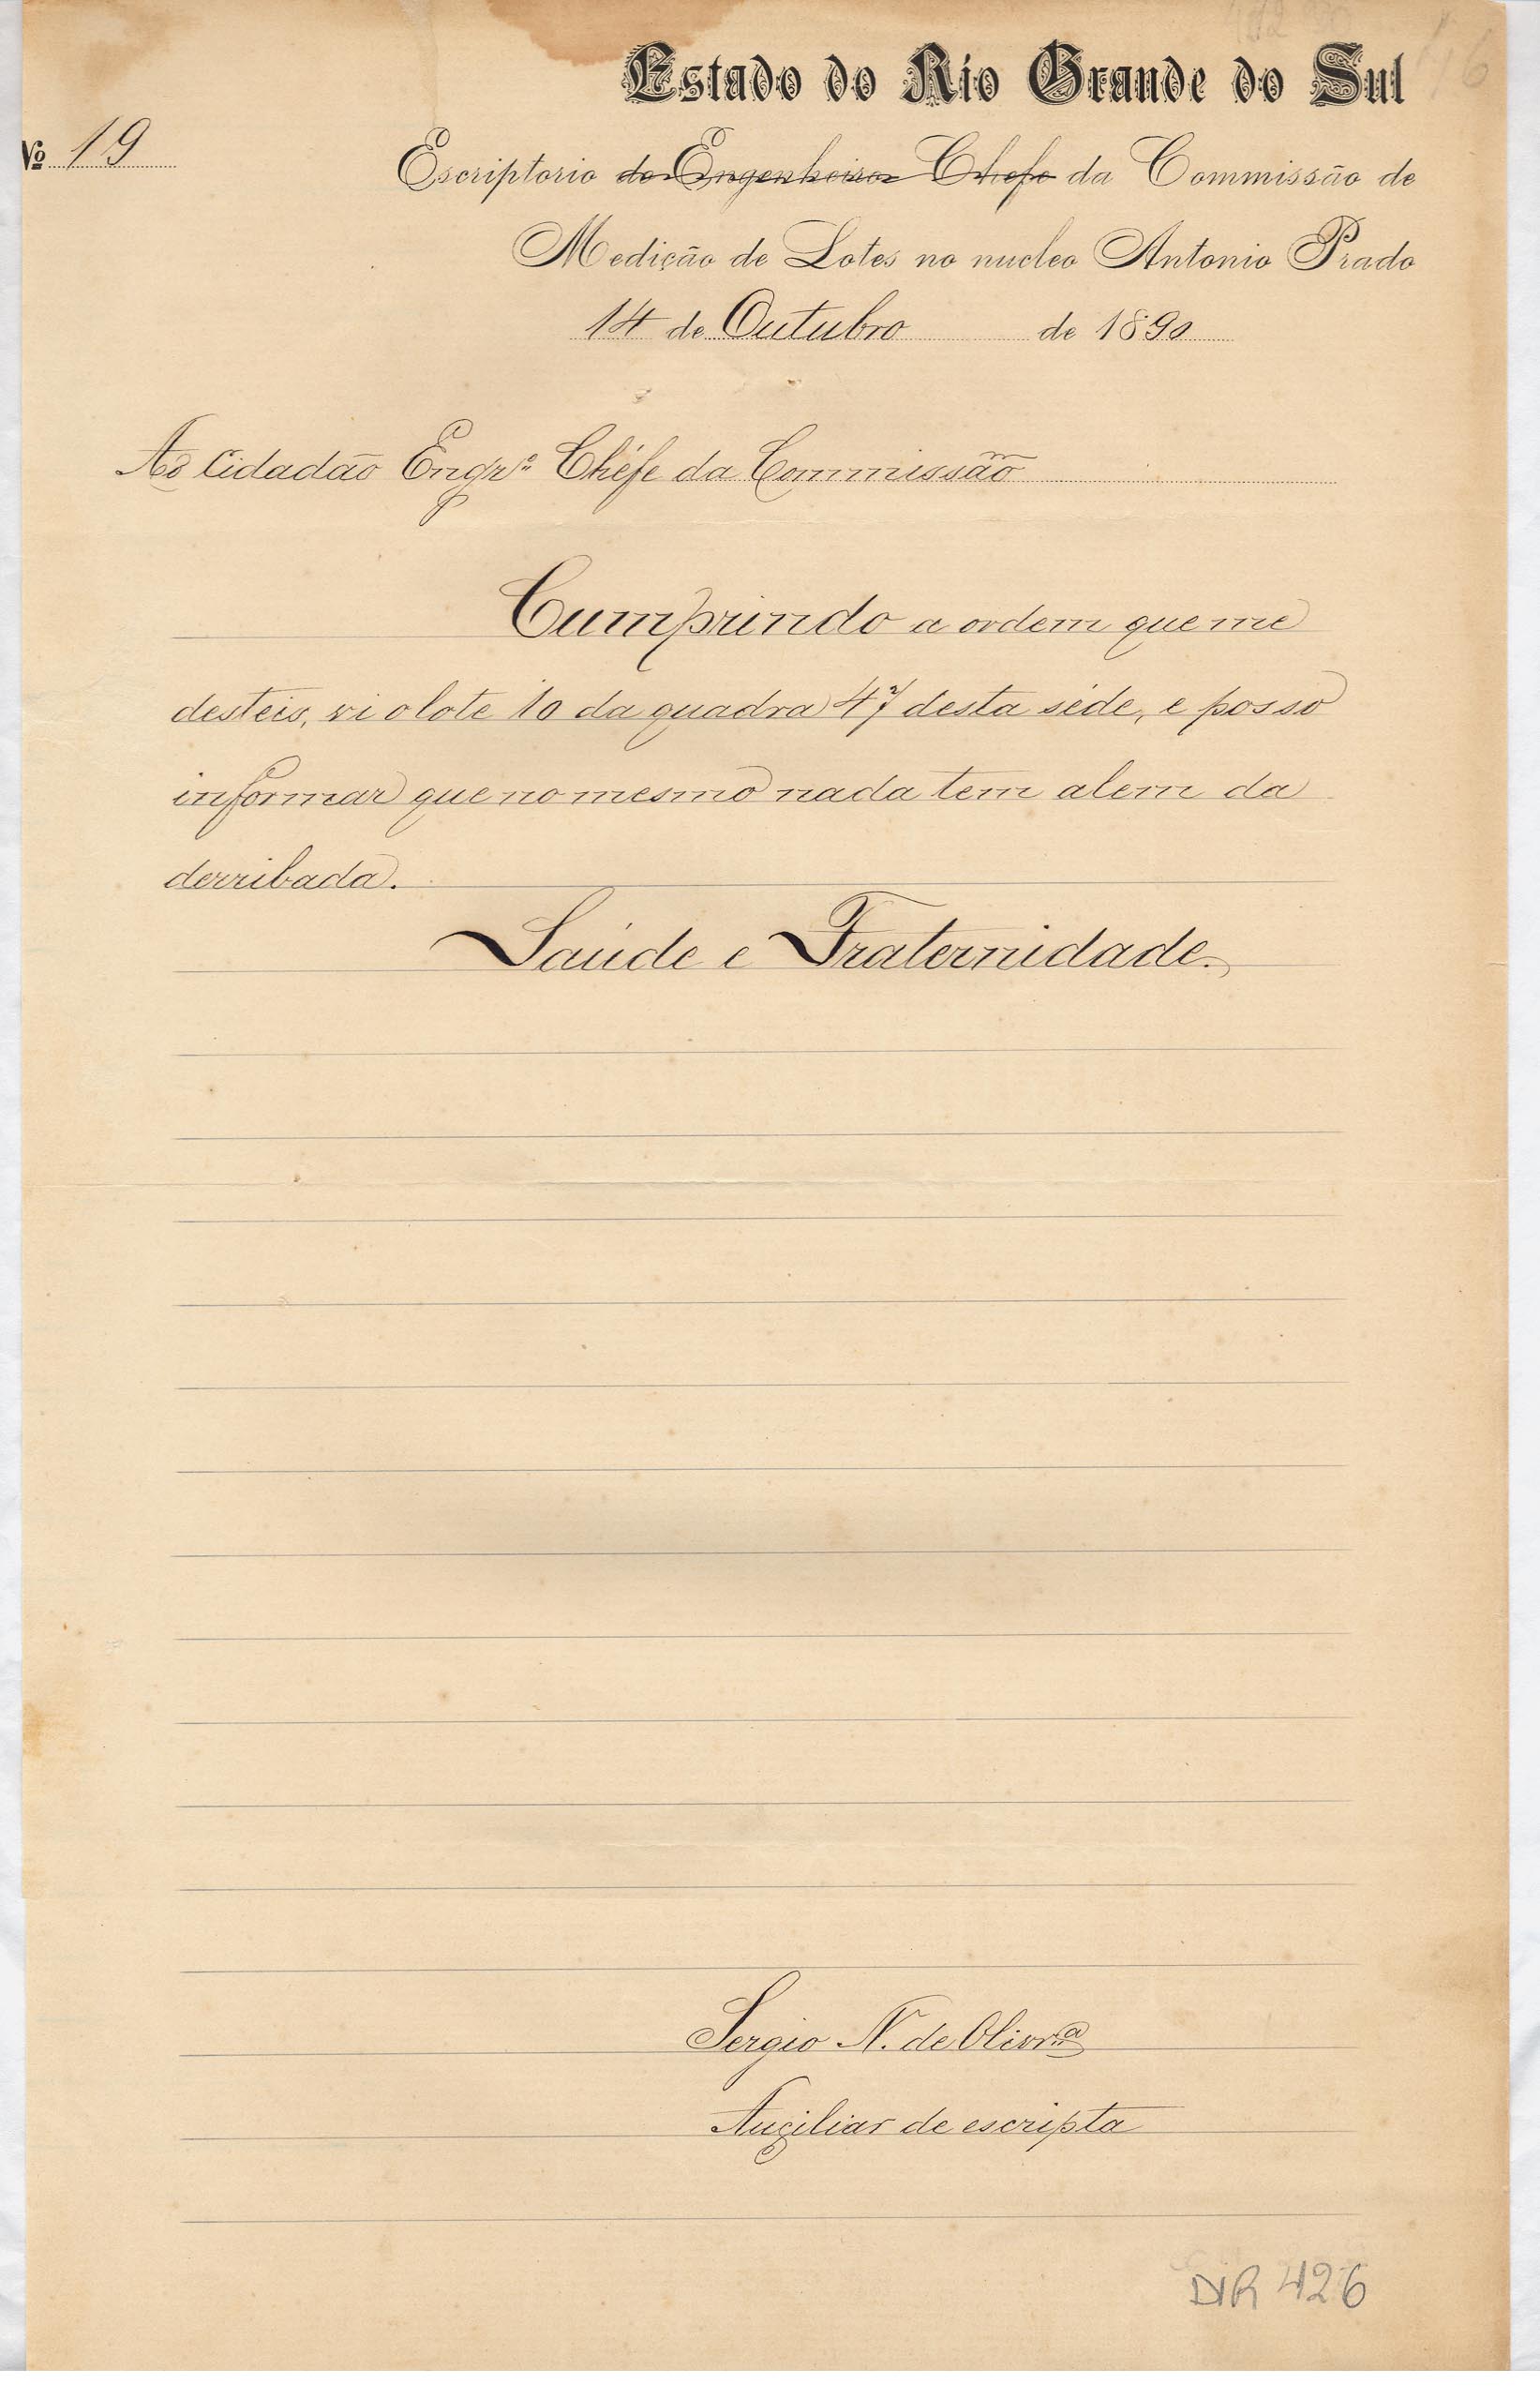 Estado do Rio Grande do Sul
Nº 19
Escriptorio do Engenheiro Chefe da Commissão de
Medição de Lotes no nucleo Antonio Prado
14 de Outubro de 1890
Ao Cidadão Engrº Chéfe da Commissão
Cumprindo a ordem que me
desteis, vi o lote 10 da quadra 47 desta séde, e posso
informar que no mesmo nada tem alem da
derribada.
Saúde e Fraternidade.
Sergio N. de Olivrª
Auxiliar de escripta
DIR 426